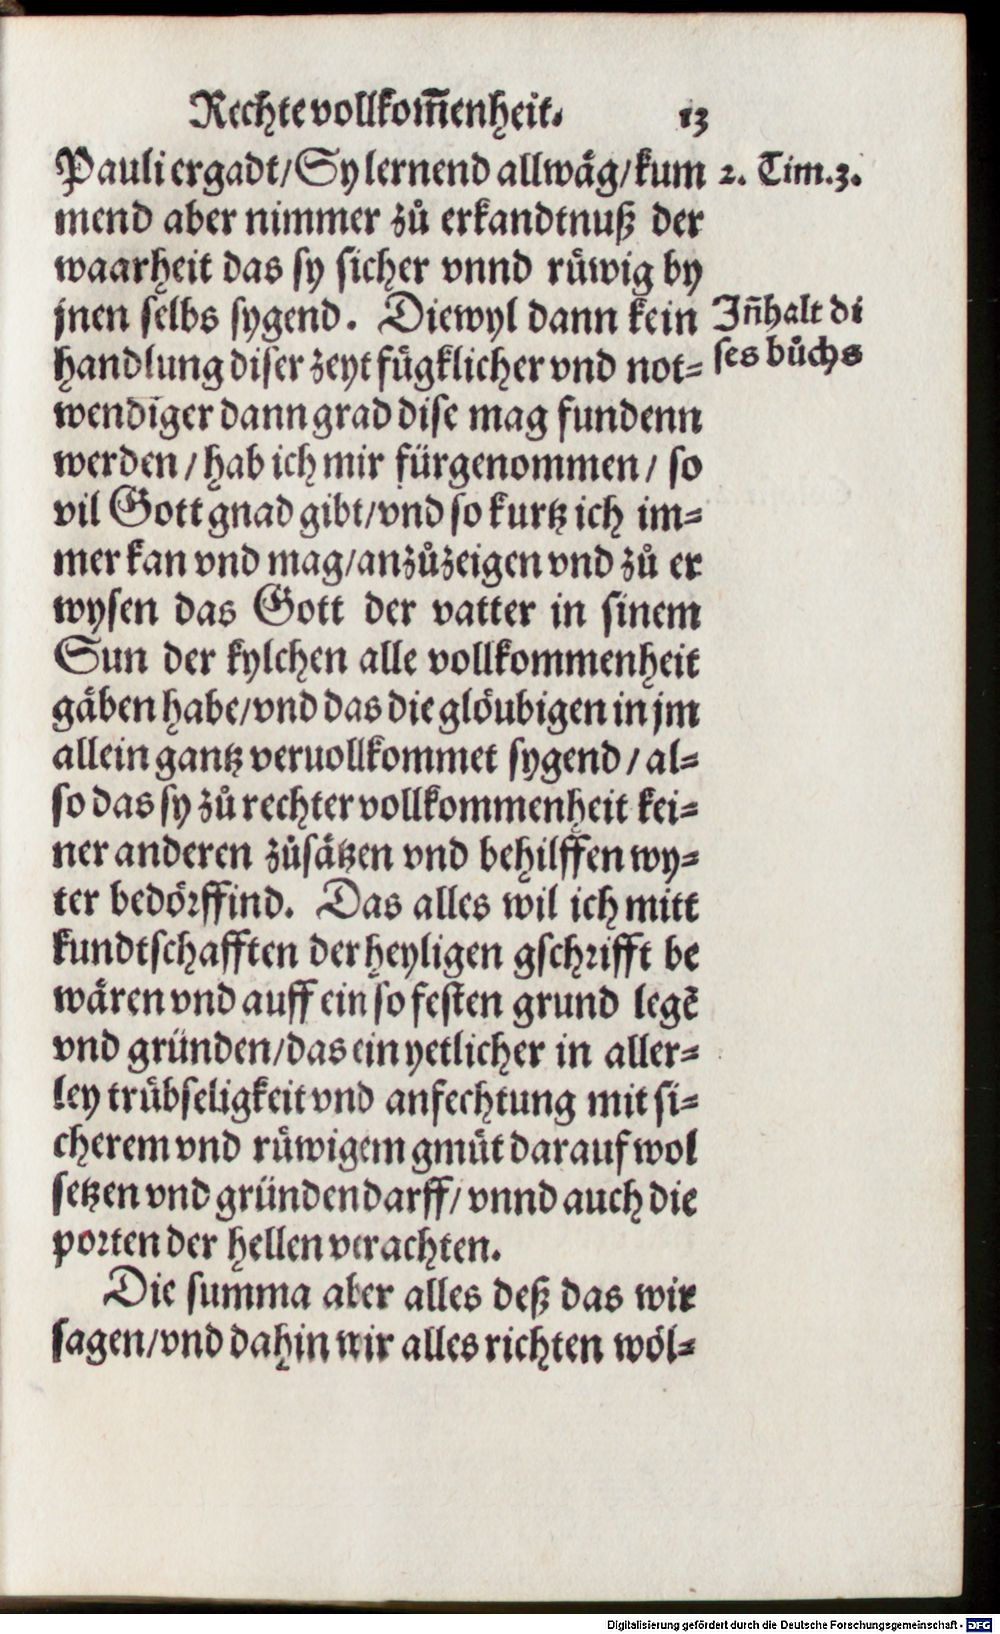 Rechte vollkom̄enheit. 13
Pauli ergadt/ Sy lernend allwäg/ kum
2. Tim. 3.
mend aber nimmer zů erkandtnuß der
waarheit das sy sicher vnnd rüwig by
jnen selbs sygend. Diewyl dann kein
Jn̄halt di
handlung diser zeyt fügklicher vnd not⸗
ses bůchs
wendiger dann grad dise mag fundenn
werden / hab ich mir fürgenommen / so
vil Gott gnad gibt/ vnd so kurtz ich im⸗
mer kan vnd mag/ anzůzeigen vnd zů er
wysen das Gott der vatter in sinem
Sun der kylchen alle vollkommenheit
gäben habe/ vnd das die glöubigen in jm
allein gantz veruollkommet sygend / al⸗
so das sy zů rechter vollkommenheit kei⸗
ner anderen zůsätzen vnd behilffen wy⸗
ter bedörffind. Das alles wil ich mitt
kundtschafften der heyligen gschrifft be
wären vnd auff ein so festen grund legẽ
vnd gründen/ das ein yetlicher in aller⸗
ley trübseligkeit vnd anfechtung mit si⸗
cherem vnd rüwigem gmüt darauf wol
setzen vnd gründen darff/ vnnd auch die
porten der hellen verachten.
Die summa aber alles deß das wir
sagen/ vnd dahin wir alles richten wöl⸗
Digitalisierung gefördert durch die Deutsche Forschungsgemeinschaft - DFG